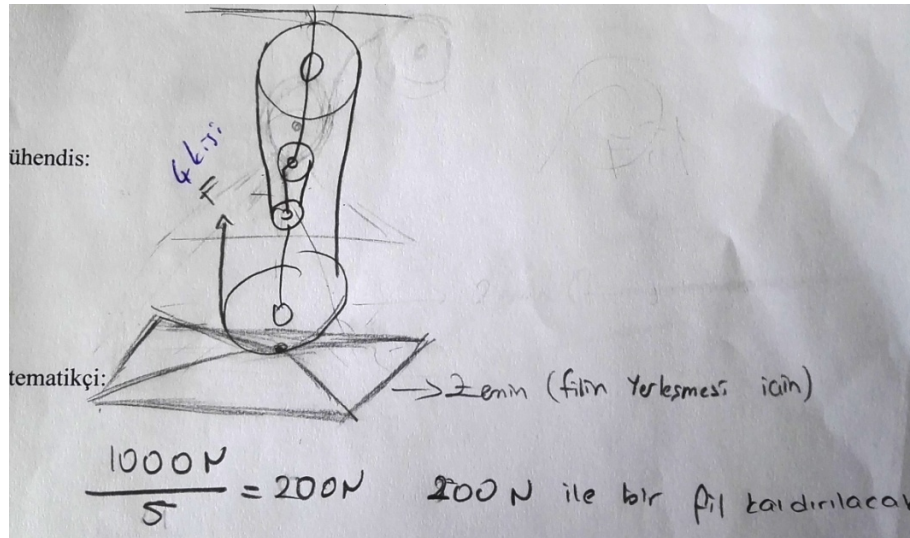 ühendis:
4 kişi
F
Fil
tematikçi:
→ Zemin (filin Yerleşmesi için)
1000N
5
= 200N
200 N ile bir fil kaldırılacak